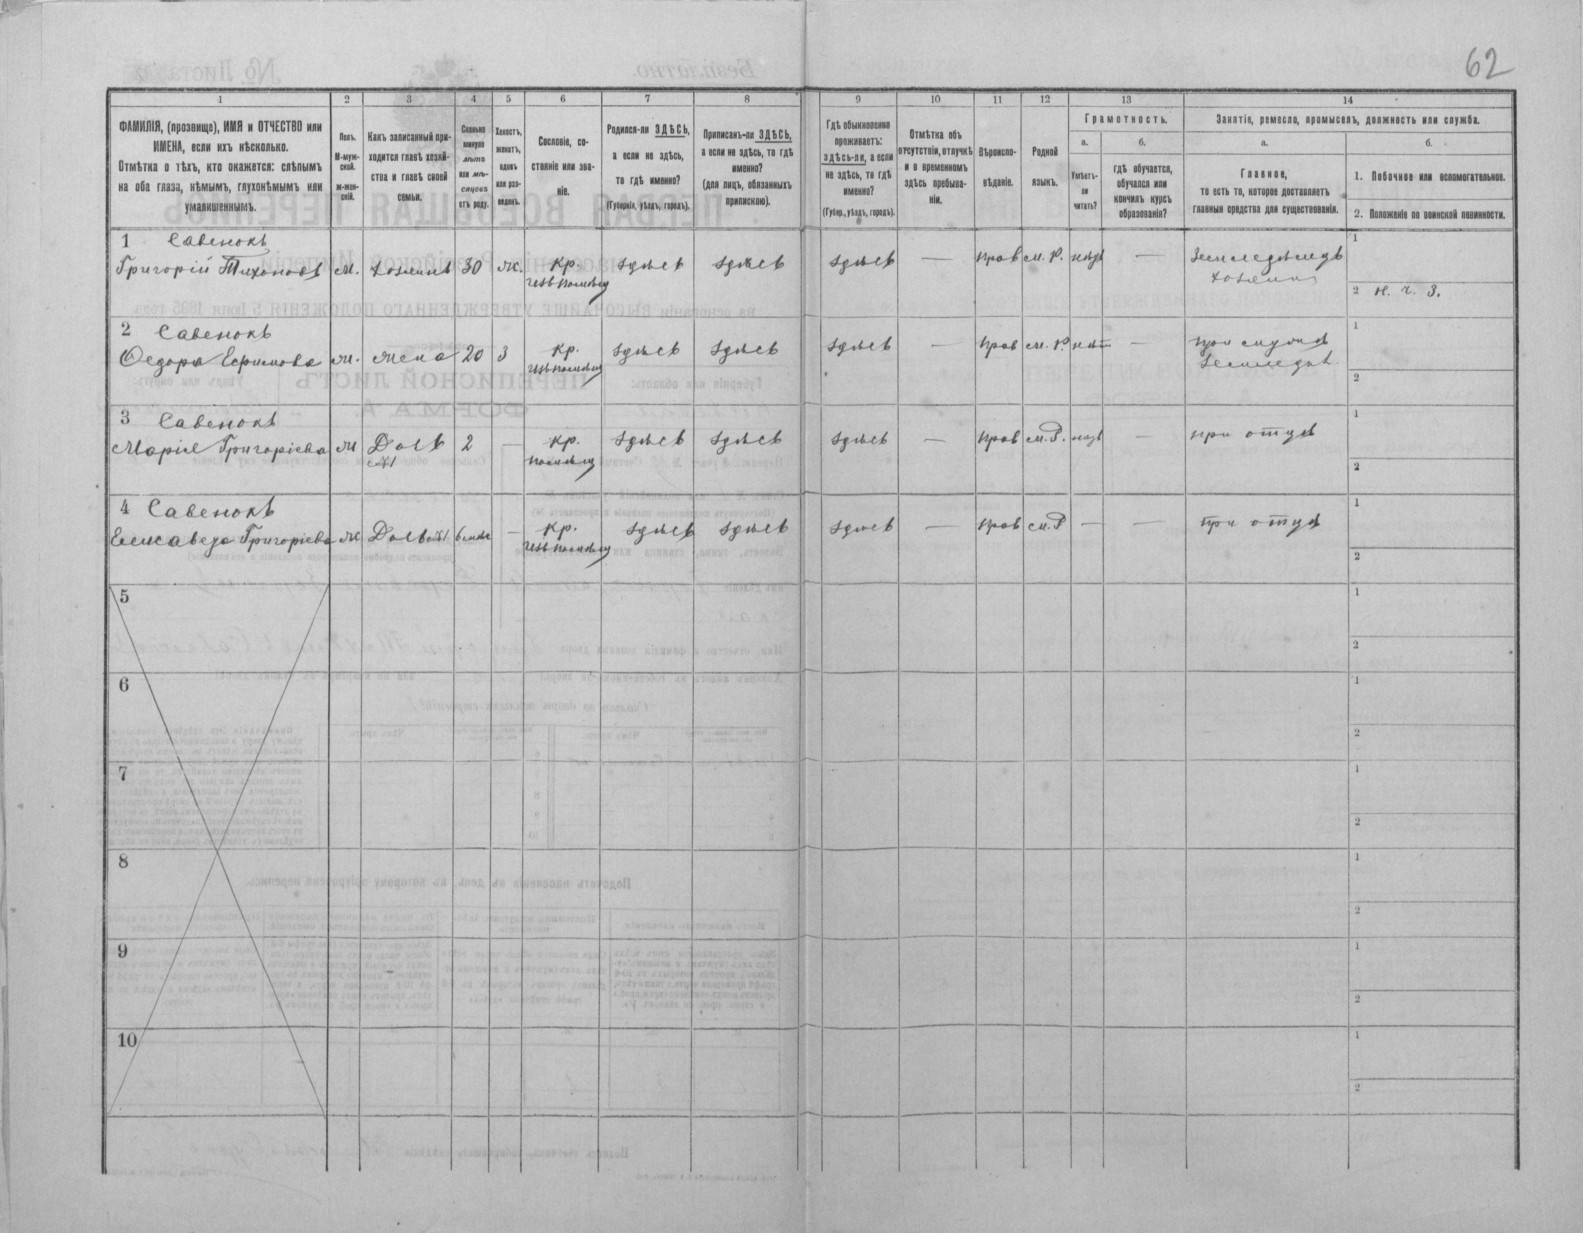 62
1
2
3
4
5
6
7
8
9
10
11
12
13
14
ФАМИЛІЯ, (прозвище), ИМЯ и ОТЧЕСТВО или
ИМЕНА, если ихъ нѣсколько.
Отмѣтка о тѣхъ, кто окажется: слѣпымъ
на оба глаза, нѣмымъ, глухонѣмымъ или
умалишеннымъ.
Полъ.
М-муж-
ской.
ж-жен-
скій.
Какъ записанный при-
ходится главѣ хозяй-
ства и главѣ своей
семьи.
Сколько
минуло
лѣтъ
или мѣ-
сяцевъ
отъ роду.
Холостъ,
женатъ,
вдовъ
или раз-
веденъ.
Сословіе, со-
стояніе или зва-
ніе.
Родился-ли ЗДѢСЬ,
а если не здѣсь,
то гдѣ именно?
(Губернія, уѣздъ, городъ).
Приписанъ-ли ЗДѢСЬ,
а если не здѣсь, то гдѣ
именно?
(для лицъ, обязанныхъ
припискою).
Гдѣ обыкновенно
проживаетъ:
здѣсь-ли, а если
не здѣсь, то гдѣ
именно?
(Губер., уѣздъ, городъ).
Отмѣтка объ
отсутствіи, отлучкѣ
и о временномъ
здѣсь пребыва-
ніи.
Вѣроиспо-
вѣданіе.
Родной
языкъ.
Грамотность.
а.
Умѣетъ-
ли
читать?
б.
гдѣ обучается,
обучался или
кончилъ курсъ
образованія?
Занятіе, ремесло, промыселъ, должность или служба.
а.
Главное,
то есть то, которое доставляетъ
главныя средства для существованія.
б.
1. Побочное или вспомогательное.
2. Положеніе по воинской повинности.
1 Савенокъ
Григорій Тихоновъ м. хозяинъ 30 ж. кр. здѣсь здѣсь здѣсь — прав м. р. — Земледѣлецъ
хозяинъ
1
2 н. ч. 3.
2 Савенокъ
Федора Ефимова ж. жена 20 з кр. здѣсь здѣсь здѣсь — прав м. р. нѣт — при мужѣ
земледѣл.
1
2
3 Савенокъ
Марія Григоріева ж Дочь 2 — кр. здѣсь здѣсь здѣсь — прав м. р. — при отцѣ
1
2
4 Савенокъ
Елисавета Григоріева ж Дочь — кр. здѣсь здѣсь здѣсь — прав м. р — — при отцѣ
1
2
5
1
2
6
1
2
7
1
2
8
1
2
9
1
2
10
1
2